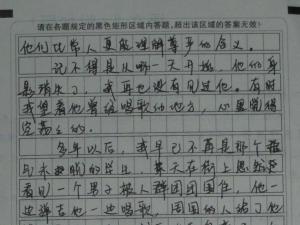 请在各题规定的黑色矩形区域内答题,超出该区域的答案无效!
他们比常人更能理解尊严的含义。
记不得是从哪一天开始,他们的身
影消失了,我再也没有见过他。有时
我望着他曾经唱歌的地方,心里觉得
空荡荡的。
多年以后,我早已不再是那个
的学生,某天在街上忽然
看见一个男子被人群团团围住,他一
边弹吉他一边唱歌,周围的人 了他